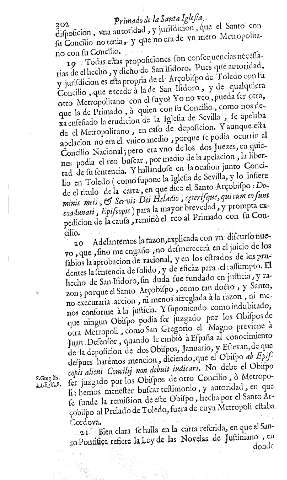 302 Primado de la Santa Iglesia,
disposicion, vna autoridad, y jurisdicion, que el Santo con
su Concilio no tenia, y que no era de vn mero Metropolita-
no con su Concilio.
19 Todas estas proposiciones son consequencias necessa-
rias del hecho, y dicho de San Isidoro. Pues que autoridad,
y jurisdicion es esta propria de el Arçobispo de Toledo con su
Concilio, que excede à la de San Isidoro, y de qualquiera
otro Metropolitano con el suyo? Yo no veo, pueda ser otra,
que la de Primado, à quien con su Concilio, como nos de-
xa enseñado la erudicion de la Iglesia de Sevilla, se apelaba
de el Metropolitano, en caso de deposicion. Y aunque esta
apelacion no era el vnico medio, porque se podia ocurrir al
Concilio Nacional; pero era vno de los dos Juezes, en quie-
nes podia el reo buscar, por medio de la apelacion, la liber-
tad de su sentencia. Y hallandose en la ocasion junto Conci-
lio en Toledo (como supone la Iglesia de Sevilla, y lo infiere
de el titulo de la carta, en que dice el Santo Arçobispo: Do-
minis meis, & Servis Dei Heladio, cæterisque, qui cum eo sunt
coadunati, Episcopis) para la mayor brevedad, y prompta ex-
pedicion de la causa, remitiò el reo al Primado con su Con-
cilio.
20 Adelantemos la razon, explicada con vn discurso nue-
vo, que, sino me engaño, no desmerecerà en el juicio de los
sabios la aprobacion de racional, y en los estrados de los pru-
dentes la sentencia de solido, y de eficaz para el assumpto. El
hecho de San Isidoro, sin duda fue fundado en justicia, y ra-
zon; porque el Santo Arçobispo, como tan docto, y Santo,
no executaria accion, ni menos arreglada à la razon, ni me-
nos conforme à la justicia. Y suponemos como indubitado,
que ningun Obispo podia ser juzgado por los Obispos de
otra Metropoli, como San Gregorio el Magno previene à
Juan Defensor, quando le embiò à España al conocimiento
de la deposicion de dos Obispos, Januario, y Estevan, de que
despues haremos mencion, diciendo, que el Obispo ab Epis-
copis alieni Concilij non debuit iudicari. No debe el Obispo
ser juzgado por los Obispos de otro Concilio, ò Metropo-
li: hemos menester buscar testimonio, y autoridad, en que
se funde la remision de este Obispo, hecha por el Santo Ar-
çobispo al Prelado de Toledo, fuera de cuya Metropoli estaba
Cordova.
21 Bien clara se halla en la carta referida, en que el San-
to Pontifice refiere la Ley de las Novelas de Justiniano, en
donde
S. Greg. lib.